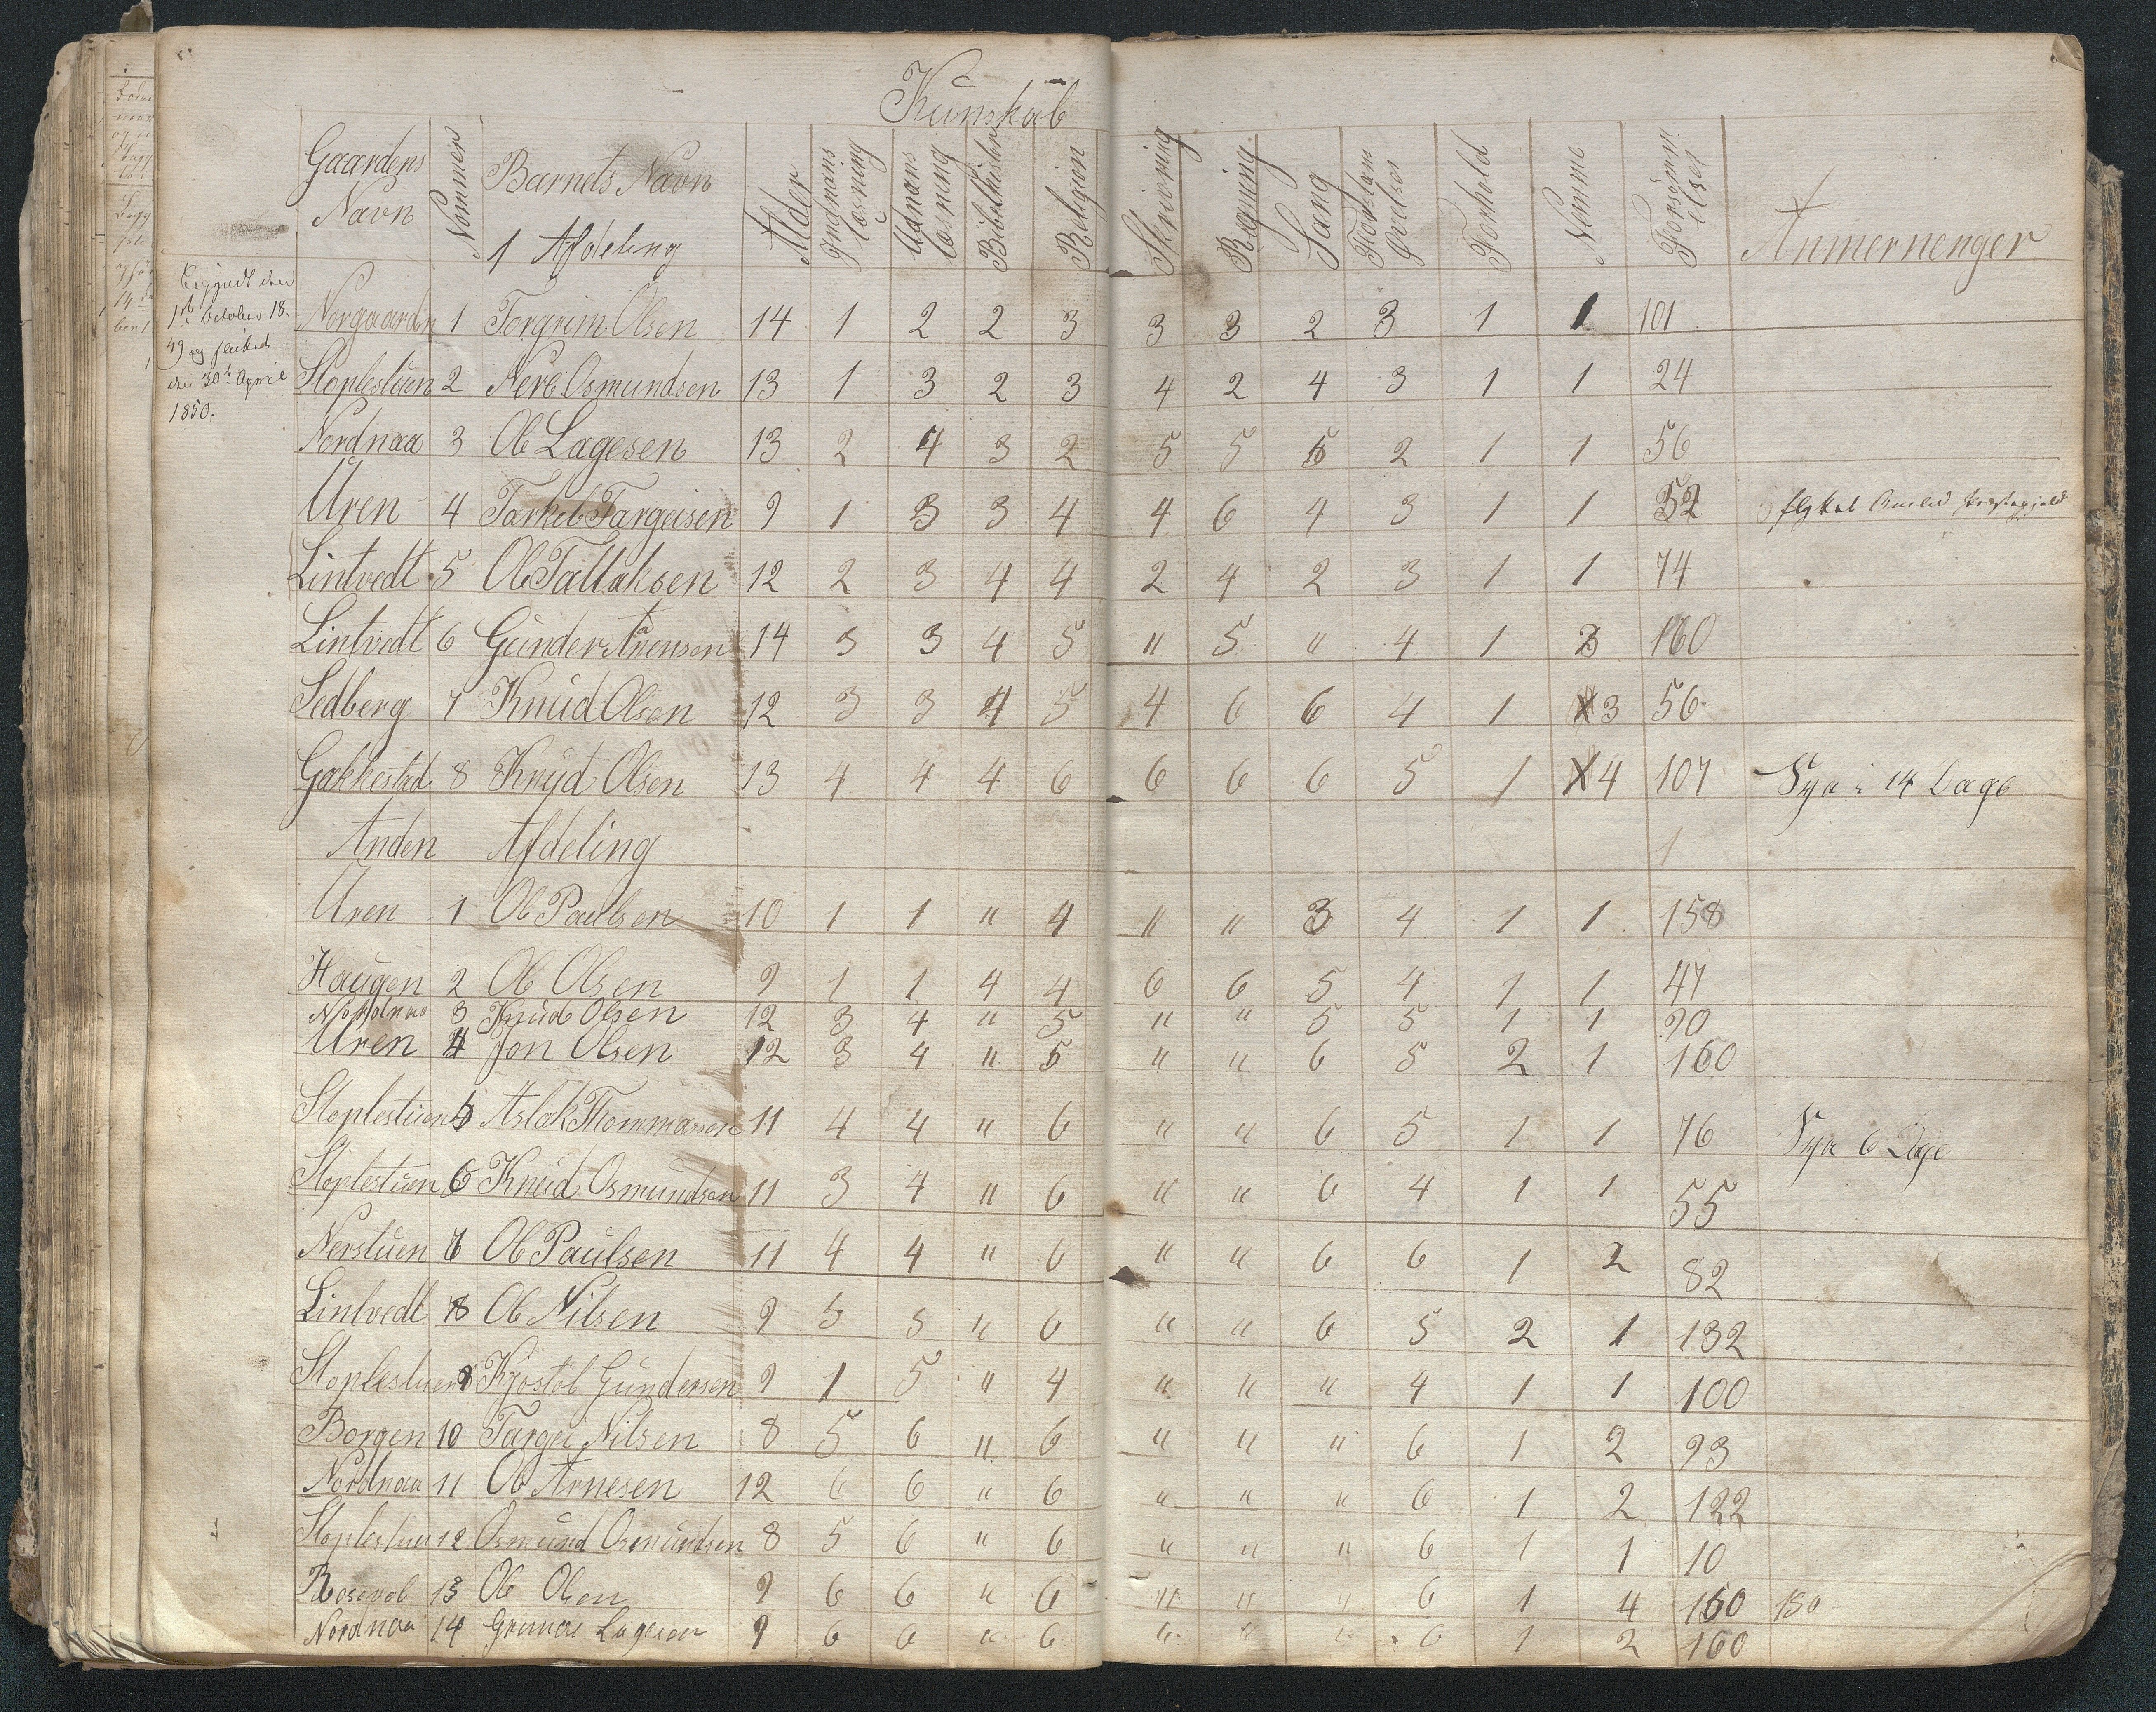 Kunskab
Gaardens Navn Nomer Barnets Navn Alder Indnans læsning Udnans læsning Bibelhistor Religion Skrivning Regning Sang Forstans Øvelser Forhold Nemme Forsømmelser Anmernenger
1 Afdeling
Begyndt den
1ste october 18
49 og
den 30te April
1850.
Norgaarden 1 Torgrim Olsen 14 1 2 2 3 3 3 2 3 1 1 101
Stoplestuen 2 Osmundsen 13 1 3 2 3 4 2 4 3 1 1 24
Nordnaa 3 Ole Lagesen 13 2 4 3 2 5 5 5 2 1 1 56
Uren 4 Tarkel Targeisen 9 1 3 3 4 4 6 4 3 1 1 52
Lintvedt 5 Ole Tallaksen 12 2 3 4 4 2 4 2 3 1 1 74
Lintvedt 6 Gunder 14 3 3 4 5 " 5 " 4 1 3 160
Sedberg 7 Knud Olsen 12 3 3 4 5 4 6 6 4 1 3 56
Gakkestad 8 Knud Olsen 13 4 4 4 6 6 6 6 5 1 4 107 Syg i 14 Dage
Anden Afdeling 1
Uren 1 Ole Paulsen 10 1 1 " 4 " " 3 4 1 1 158
Haugen 2 Ole Olsen 9 1 1 4 4 6 6 5 4 1 1 47
Nordnaa 3 Knud Olsen 12 3 4 " 5 " " 5 5 1 1 90
Uren 4 Jon Olsen 12 3 4 " 5 " " 6 5 2 1 160
Stoplestuen 5 Aslak Thommasen 11 4 4 " 6 " " 6 5 1 1 76 Syg 6 Dage
Stoplestuen 6 Knud Osmundsen 11 3 4 " 6 " " 6 4 1 1 55
Nerstuen 7 Ole Paulsen 11 4 4 " 6 " " 6 6 1 2 82
Lintvedt 8 Ole Nilsen 9 5 5 " 6 " " 6 5 2 1 132
Stoplestuen 9 Kjøstøl Gundersen 9 1 5 " 4 " " " 4 1 1 100
Borgen 10 Targei Nilsen 8 5 6 " 6 " " " 6 1 2 93
Nordnaa 11 Ole Arnesen 12 6 6 " 6 " " " 6 1 2 122
Stoplestuen 12 Osmund Osmundsen 8 5 6 " 6 " " " 6 1 1 10
13 Ole Olsen 9 6 6 " 6 " " " 6 1 4 160 150
Nordnaa 14 Lagesen 9 6 6 " 6 " " " 6 1 2 160